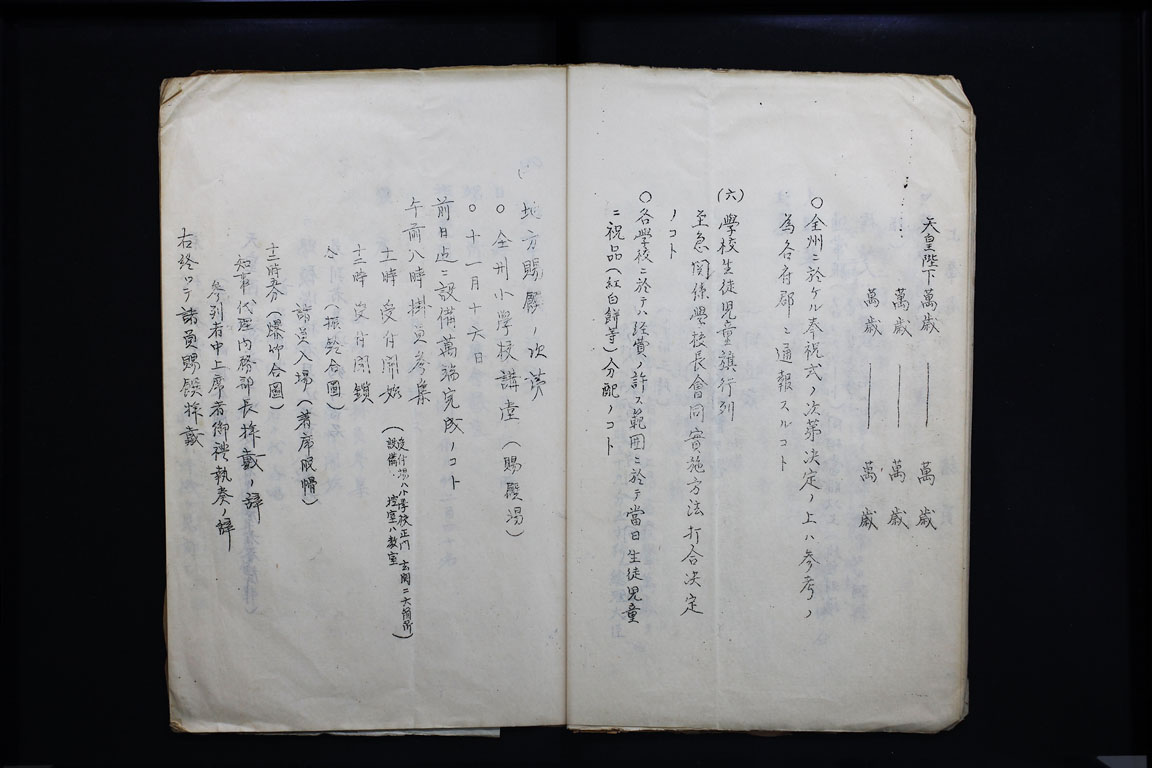 天皇陛下萬歳 ― 萬歳
萬歳 ― 萬歳
萬歳 ― 萬歳
〇全州ニ於ケル奉祝式ノ次第決定ノ上ハ参考ノ
為各府郡ニ通報スルコト
(六)學校生徒児童旗行列
至急関係學校長會同実施方法打合决定
ノコト
〇各學校ニ於テハ経費ノ許ス範囲ニ於テ當日生徒児童
ニ祝品(紅白餅等)分配ノコト
地方賜饌ノ次第
〇全州小学校講堂(賜饌場)
〇十一月十六日
前日迄ニ設備萬端完成ノコト
午前八時掛員参集
十一時受付開始(受付場ハ小学校正門玄関ニ大箇所
設備、控室ハ教室)
十二時受付閉鎖
仝(振鈴合圖)
諸員入場(著席脱帽)
(爆竹合圖)
知事代理内務部長捧戴ノ辞
参列者中上席者御禮執奏ノ辞
右終ツテ諸員賜饌捧戴